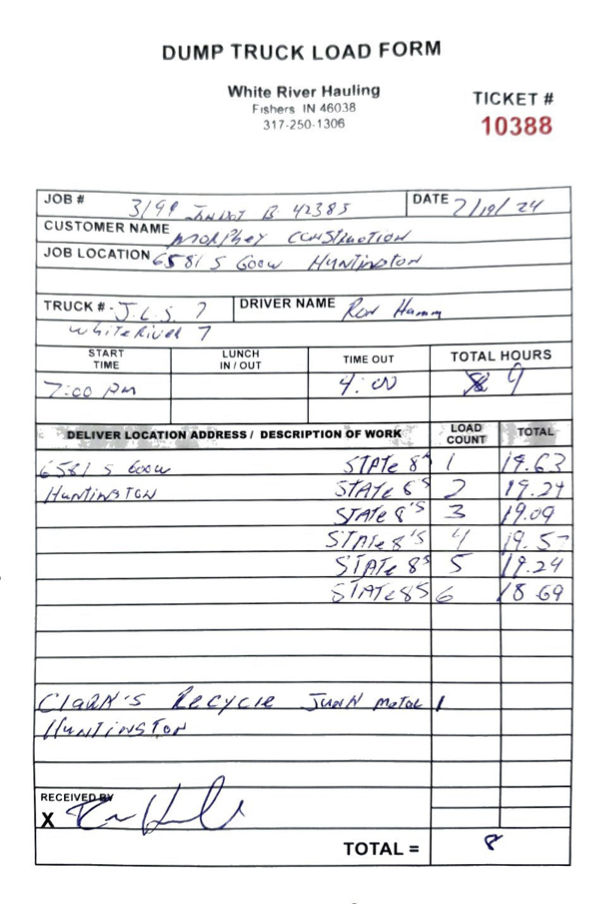 DUMP TRUCK LOAD FORM
White River Hauling
Fishers IN 46038
317-250-1306
TICKET #
10388
JOB # 3199 B 42385 DATE 7/19/24
CUSTOMER NAME MORPhEY CONSTRUCTION
JOB LOCATION 6581 S 600W HUNTINGTON
TRUCK # J.L.S. 7 DRIVER NAME Ron Hamm
White River 7
START TIME LUNCH IN / OUT TIME OUT TOTAL HOURS
7:00 Am 4:00 9
DELIVER LOCATION ADDRESS / DESCRIPTION OF WORK LOAD COUNT TOTAL
6581 S 600W STATE 8s 1 19.63
HUNTINGTON STATE 8'S 2 19.24
STATE 8'S 3 19.09
STATE 8'S 4 19.57
STATE 8s 5 19.24
STATE 8S 6 18 69
CLARK'S RECYCLE JUNK METAL 1
HUNTINGTON
RECEIVED BY
X
TOTAL = 8